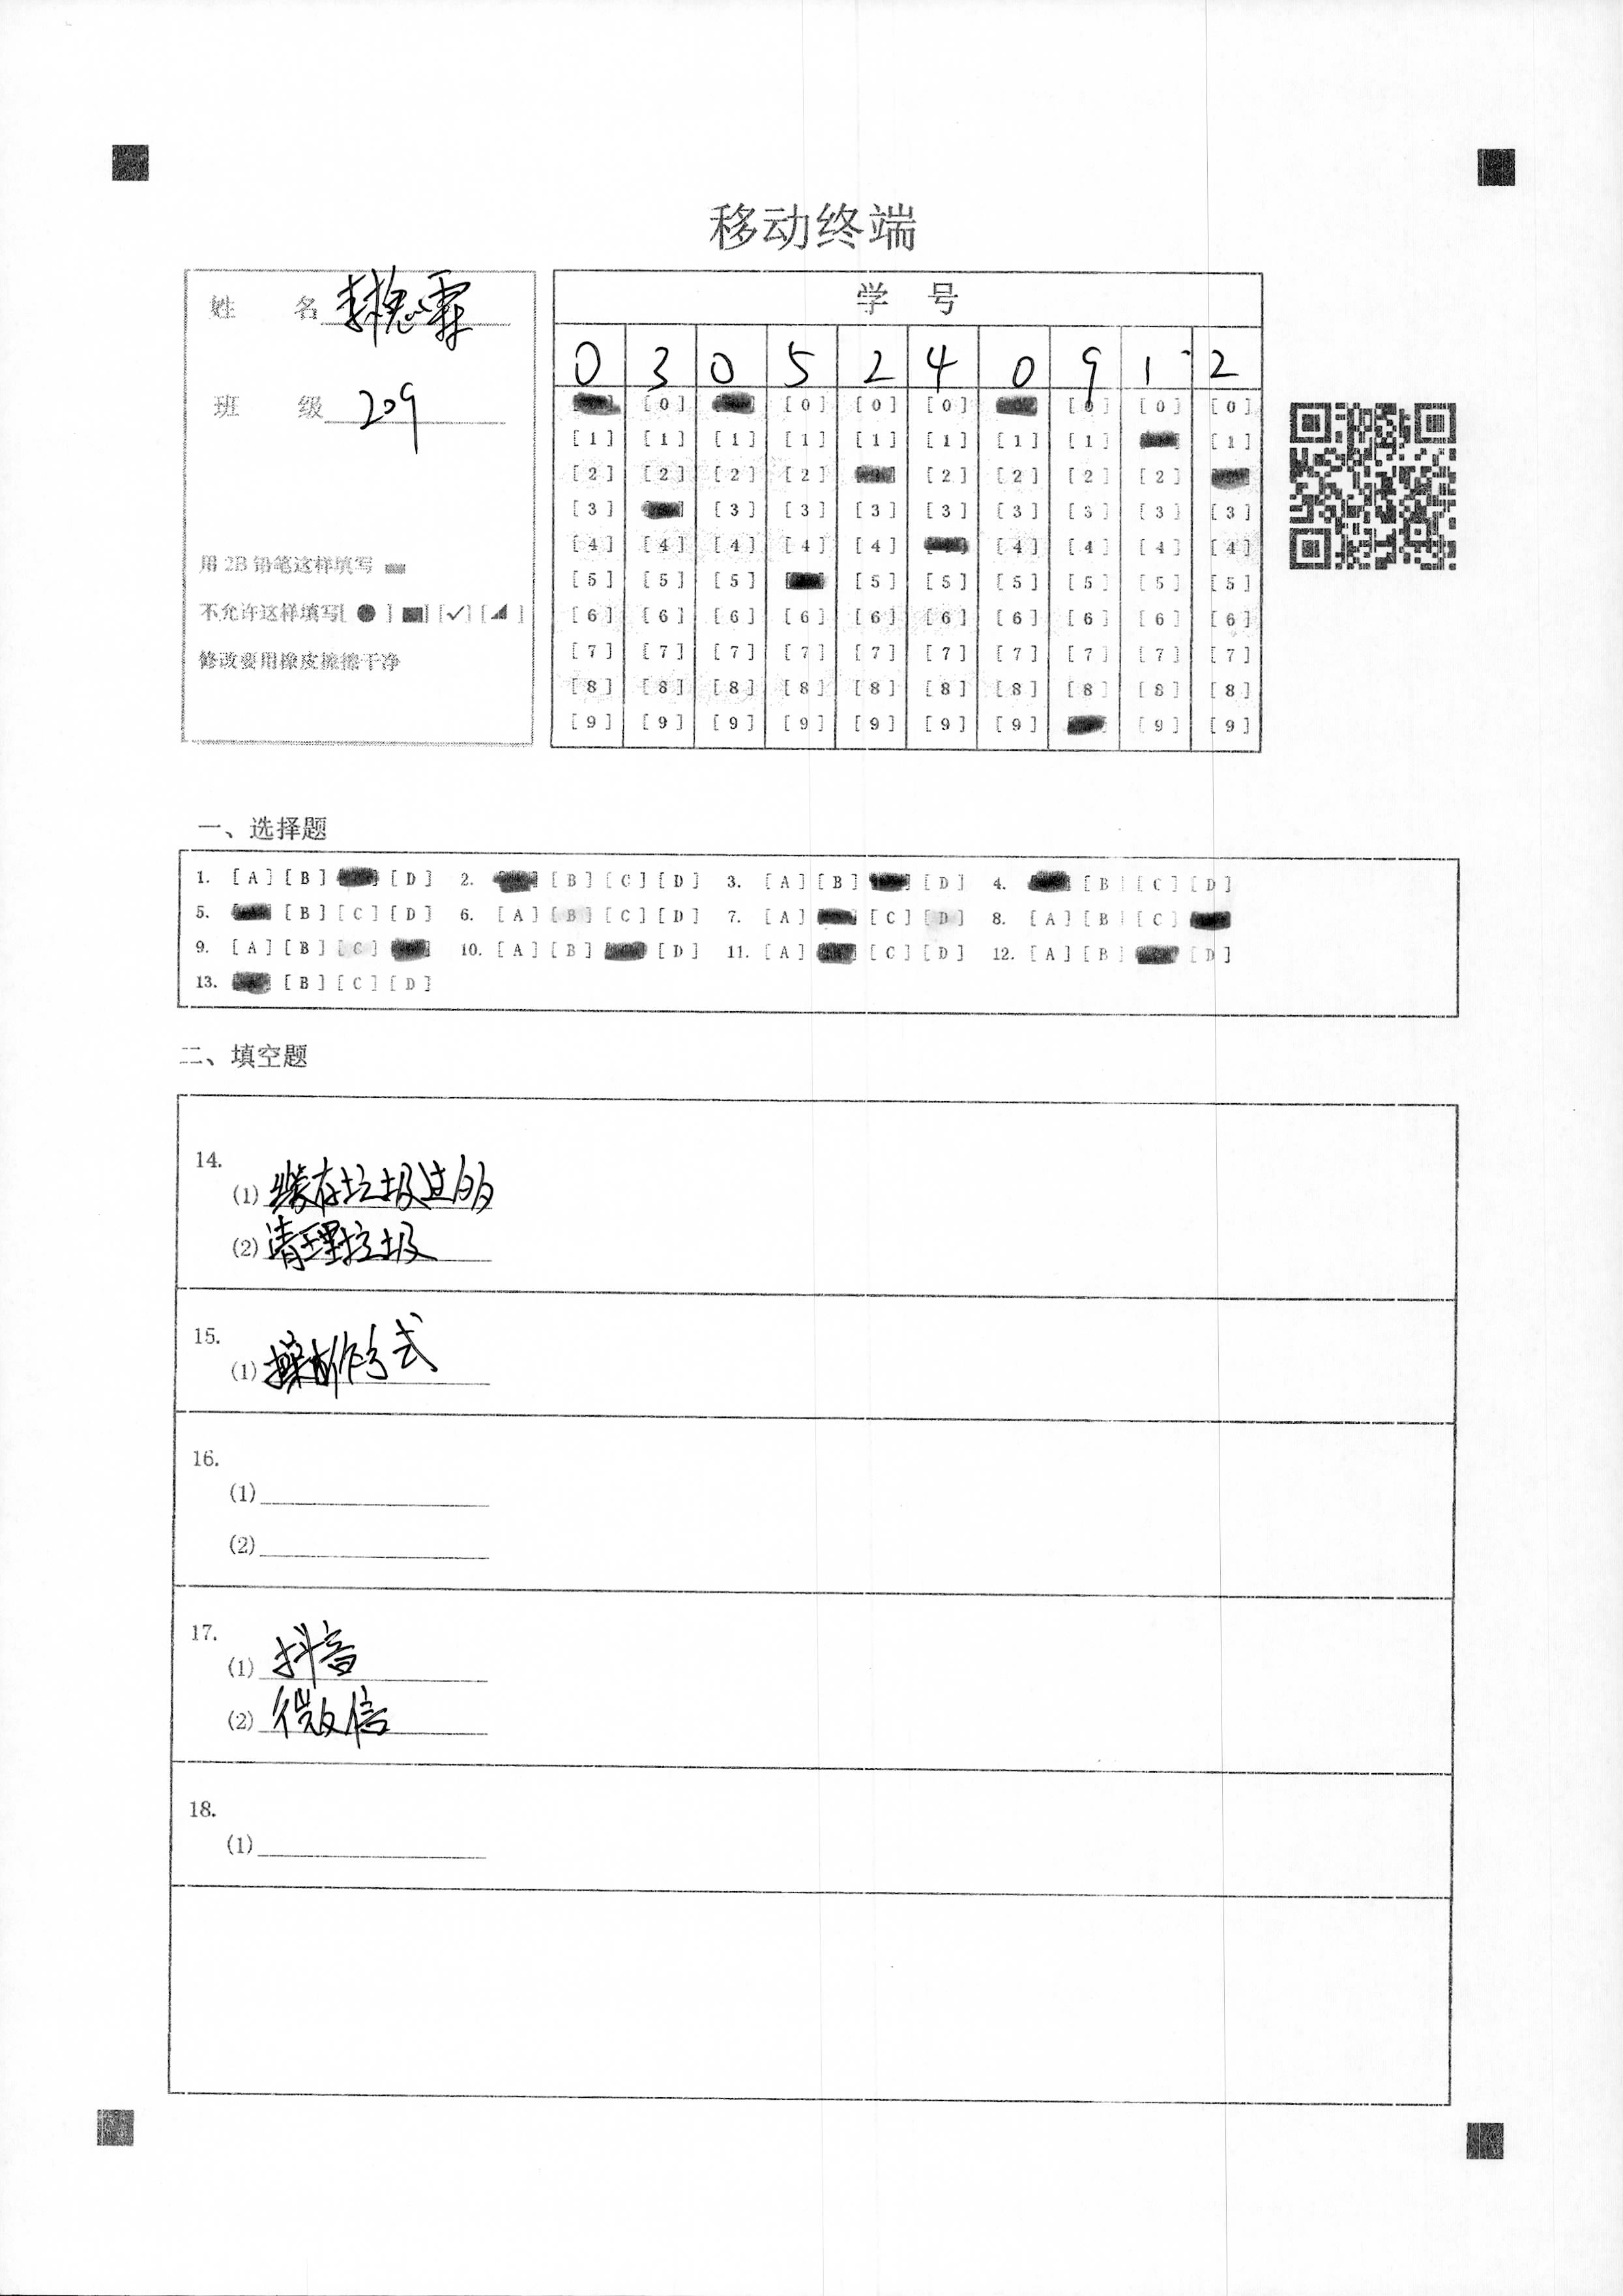 移动终端
姓 名
班 级 209
用 2B 铅笔这样填写
不允许这样填写[ ● ] ■] [✓] [◢ ]
修改要用橡皮擦擦干净
学 号
0 3 0 5 2 4 0 9 1 2
[0] [0] [0] [0] [0] [0] [0]
[1] [1] [1] [1] [1] [1] [1] [1] [1]
[2] [2] [2] [2] [2] [2] [2] [2]
[3] [3] [3] [3] [3] [3] [3] [3] [3]
[4] [4] [4] [4] [4] [4] [4] [4] [4]
[5] [5] [5] [5] [5] [5] [5] [5] [5]
[6] [6] [6] [6] [6] [6] [6] [6] [6] [6]
[7] [7] [7] [7] [7] [7] [7] [7] [7] [7]
[8] [8] [8] [8] [8] [8] [8] [8] [8] [8]
[9] [9] [9] [9] [9] [9] [9] [9] [9]
一、选择题
1. [A] [B] [D] 2. [B] [C] [D] 3. [A] [B] [D] 4. [B] [C] [D]
5. [B] [C] [D] 6. [A] [B] [C] [D] 7. [A] [C] [D] 8. [A] [B] [C]
9. [A] [B] [C] 10. [A] [B] [D] 11. [A] [C] [D] 12. [A] [B] [D]
13. [B] [C] [D]
二、填空题
14.
(1) 缓存垃圾过多的
(2) 清理垃圾
15.
(1) 操作方式
16.
(1)
(2)
17.
(1) 抖音
(2) 微信
18.
(1)